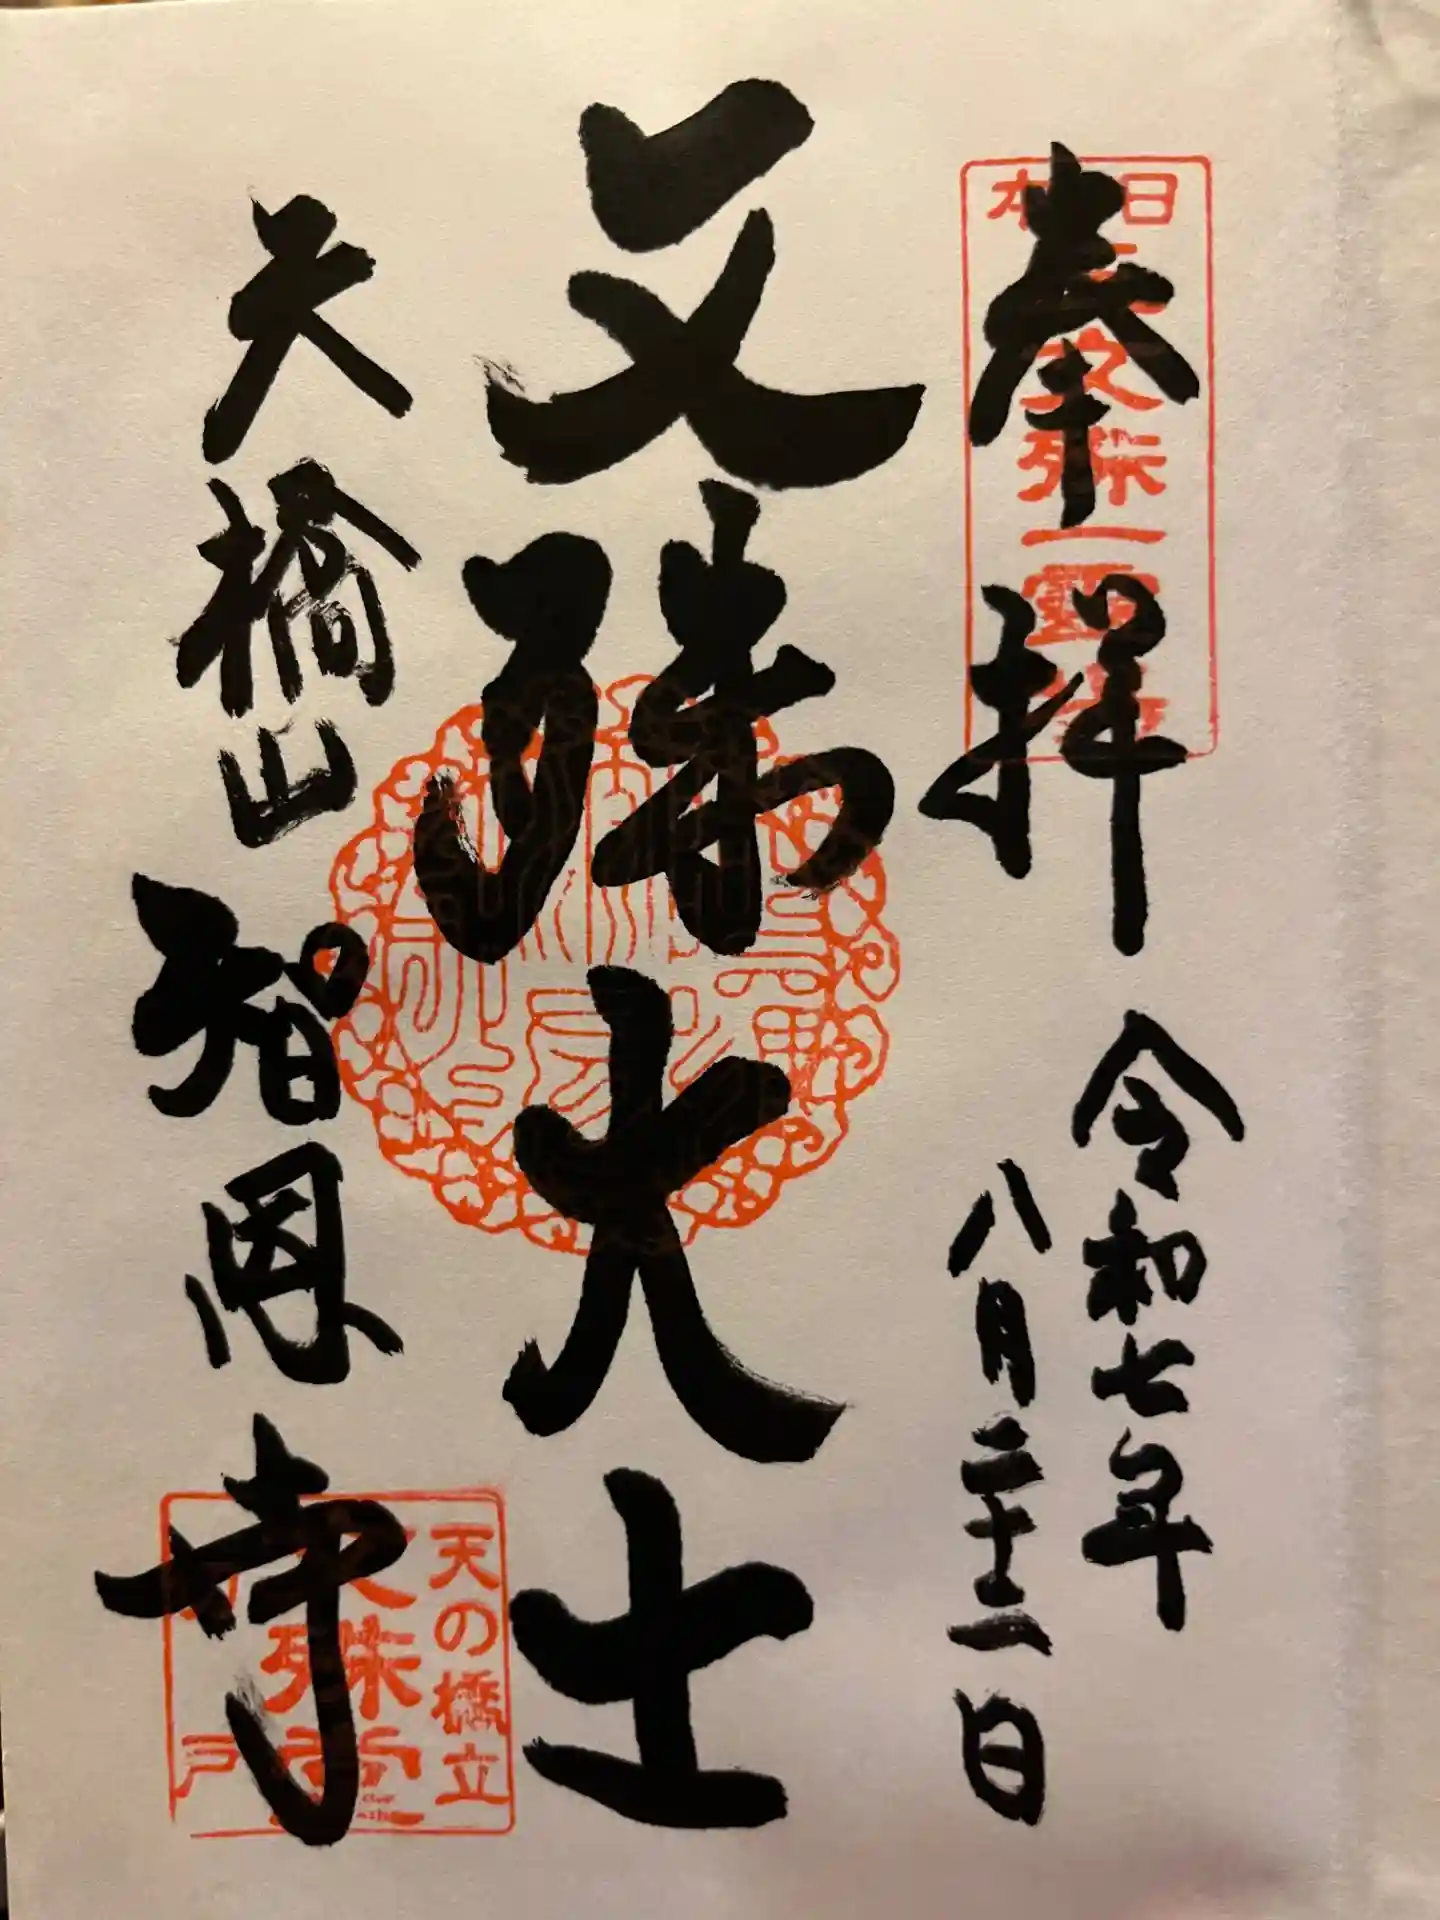 奉拝
令和七年
八月二十二日
文殊大士
天橋山智恩寺
日本
文殊
一霊
天の橋立
殊堂
戸